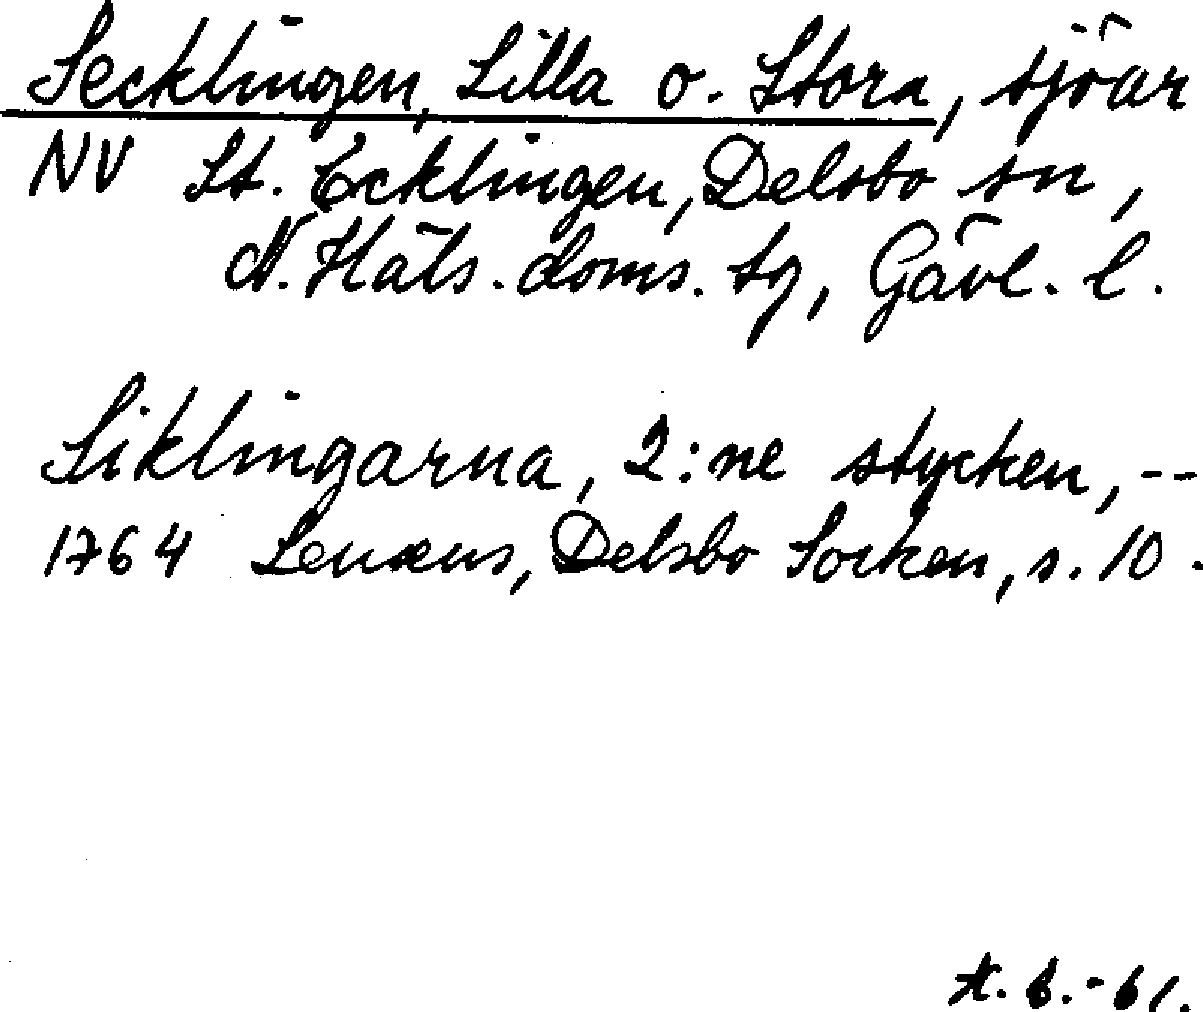 Secklingen, Lilla o. Stora, sjöar
NV St. Ecklingen, Delsbo sn,
N. Häls. doms. tg, Gävl. l.
Siklingarna, 2:ne stycken, --
1764 Lenæus, Delsbo Socken, s. 10.